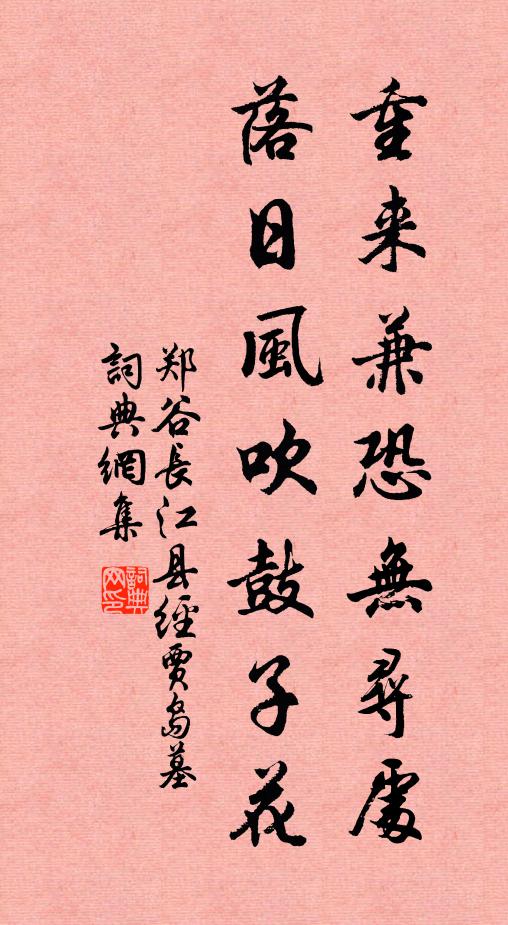 重来兼恐無尋處
落日風吹鼓子花
郑谷長江县經賈島墓
詞典網集
詞典网印